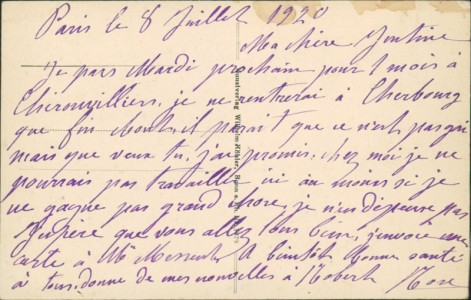 Paris le 8 Juillet 1920
Ma chère Justine
Je pars Mardi prochain pour 1 mois à
Cherouvilliers, je ne rentrerai à Cherbourg
que fin Août, il parait que ce n'est pas gai
mais que veux tu, j'ai promis, chez moi je ne
pourrais pas travailler ici au moins si je
ne gagne pas grand chose, je n'en dépense pas
J'espère que vous allez tous bien, j'envoie une
carte à Me A bientôt Bonne santé
à tous, donne de mes nouvelles à Robert Rose
Kunstverlag